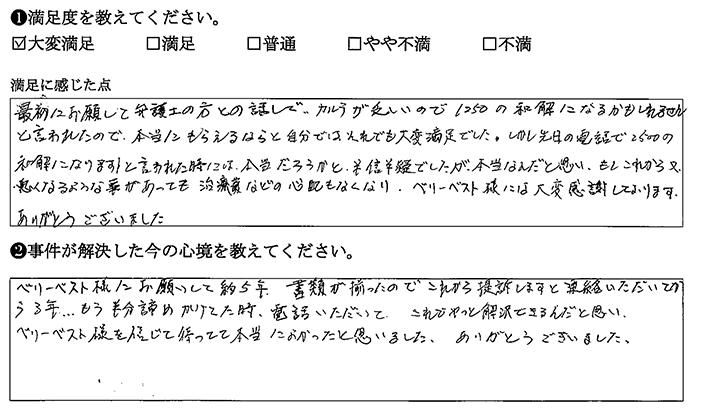 ❶満足度を教えてください。
☑大変満足 □満足 □普通 □やや不満 □不満
満足に感じた点
最初にお願いして弁護士の方との話しで、カルテが乏しいので1250の和解になるかもしれません
と言われたので、本当にもらえるならと自分ではそれでも大変満足でした。しかし先日の電話で2500の
和解になりますと言われた時には、本当だろうかと、半信半疑でしたが、本当なんだと思い、もしこれから又
悪くなるような事があっても治療費などの心配もなくなり、ベリーベスト様には大変感謝しております。
ありがとうございました
❷事件が解決した今の心境を教えてください。
ベリーベスト様にお願いして約5年 書類が揃ったのでこれから提訴しますと連絡いただいてか
ら3年…もう半分諦めかけてた時、電話いただいて これでやっと解決できるんだと思い、
ベリーベスト様を信じて待ってて本当によかったと思いました、 ありがとうございました、